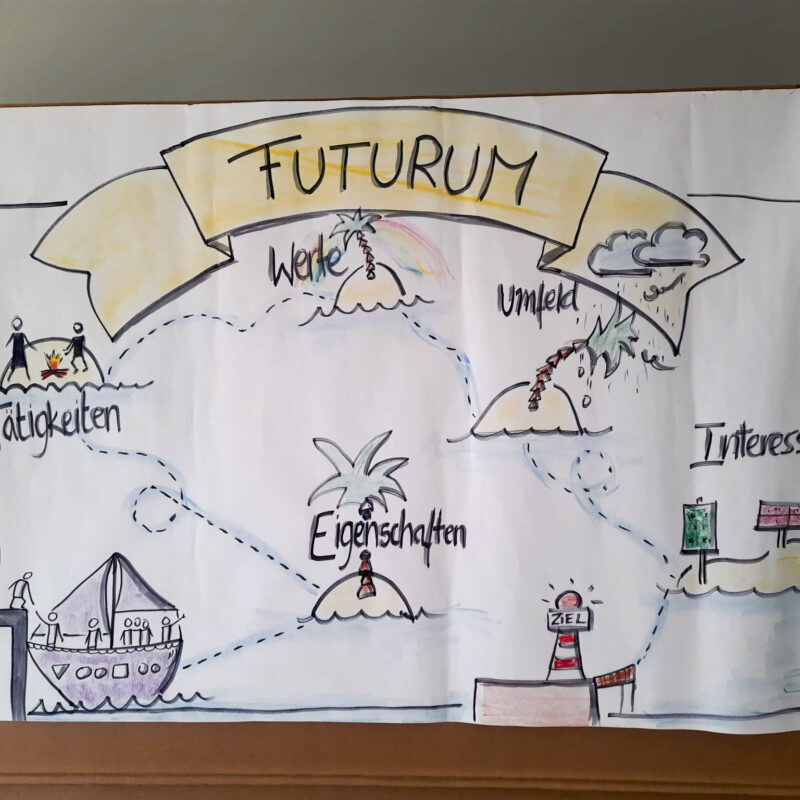 FUTURUM
Werte
Umfeld
Tätigkeiten
Interess
Eigenschaften
ZIEL